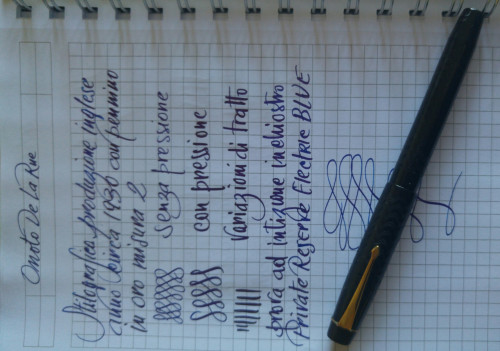 Onoto De La Rue
Stilografica produzione inglese
anno circa 1936 con pennino
in oro misura 2
senza pressione
con pressione
Variazioni di tratto
prova ad intinzione inchiostro
Private Reserve Electric BLUE